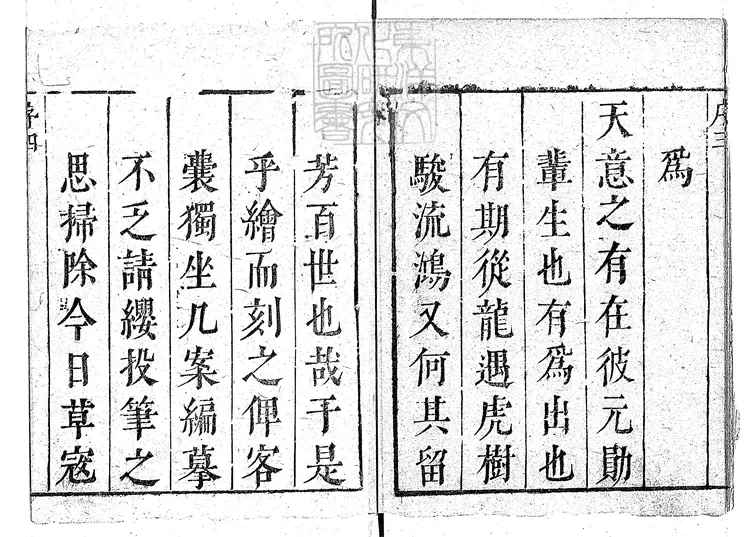 序三
爲
天意之有在彼元勛
輩生也有爲出也
有期從龍遇虎樹
駿流鴻又何其留
芳百世也哉于是
乎繪而刻之俾客
囊獨坐几案編摹
不乏請纓投筆之
思掃除今日草寇
序四